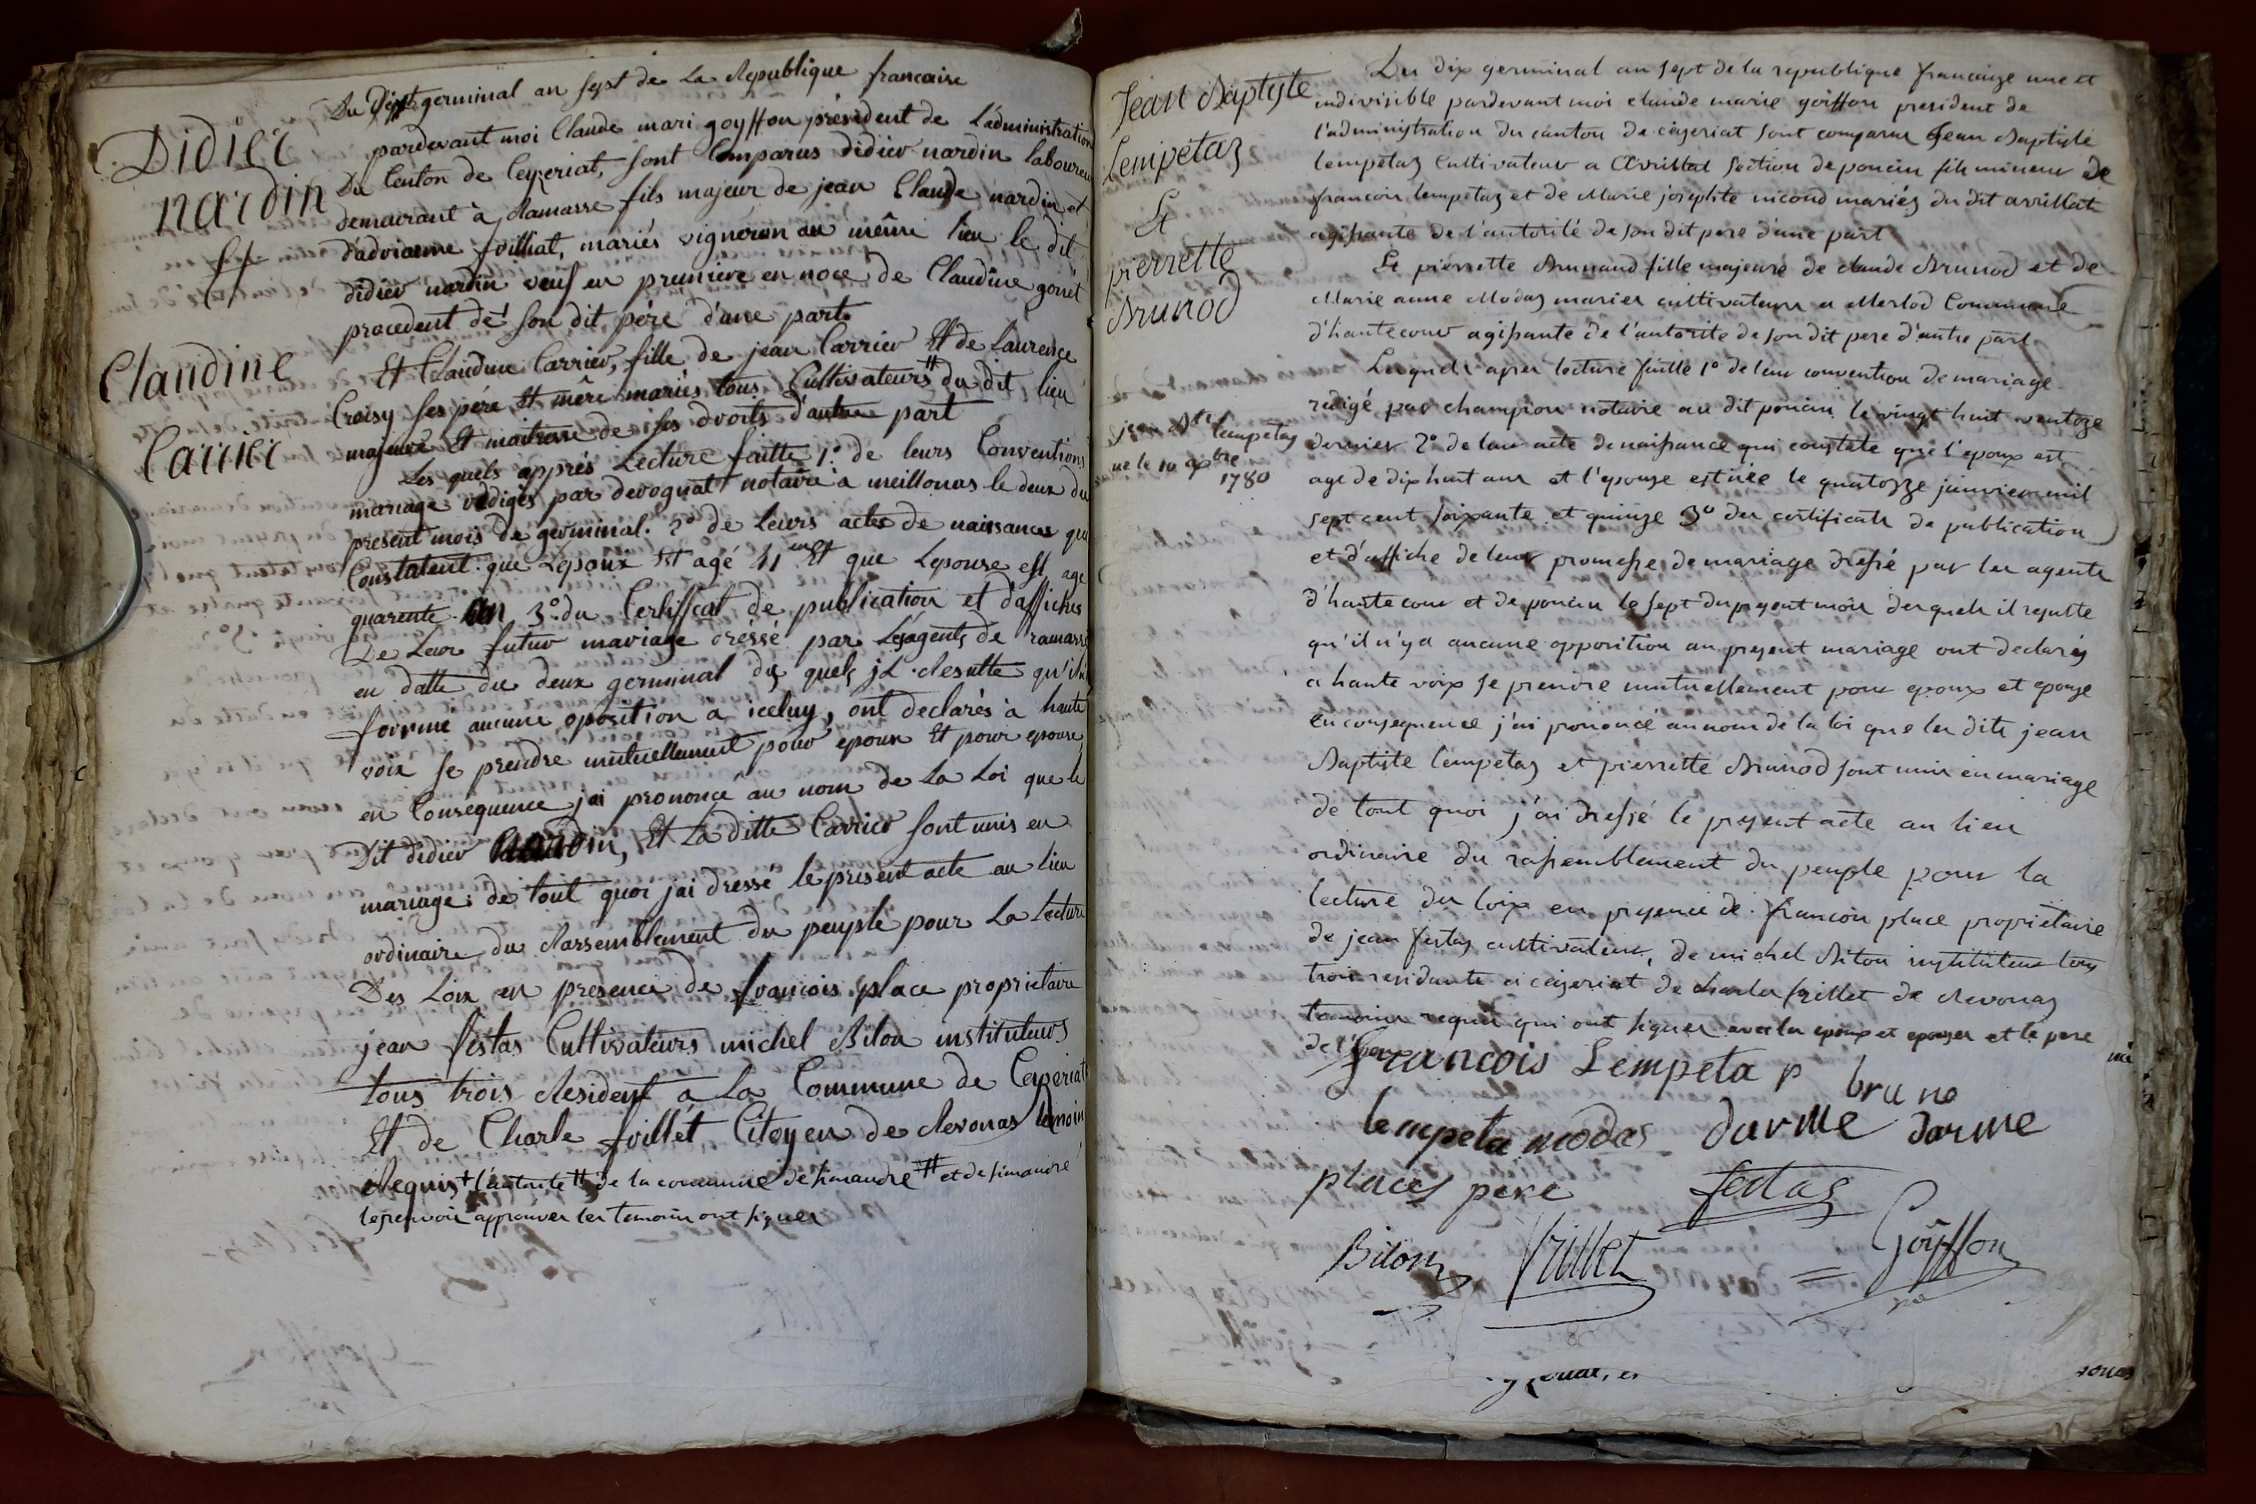 Didier
nardin
Et
Claudine
Carrier
Du germinal an sept de La Republique francaise
pardevant moi Claude mari goyffon président de L'administration
Du Canton de Ceyzeriat, sont Comparus didier nardin Laboureur
demeurant à Ramasse fils majeur de jean Claude nardin et
d'adrianne foilliat, mariés vigneron au même lieu le dit
didier nardin veuf en premiere en noce de Claudine
procedent de son dit père d'une part
Et Claudine Carrier, fille de jean Carrier Et de Laurence
Croisy ses père Et mère mariés tous Cultivateurs # du dit lieu
majeure Et maitresse de ses droits d'autre part
Les quels apprés Lecture faitte 1° de leurs Conventions
mariage redigés par devognat notaire à meillonas le deux du
présent mois de germinal. 2° de leurs actes de naissances qui
Constatent que L'epoux Est agé 41 ans Et que Lepouse est age
quarente an 3° du Certifficat de publication et d'affiches
De Leur futur mariage dréssé par Lesagents de ramasse
en datte du deux germinal des quels jL Resulte qu'il
forme aucune oposition a iceluy, ont declarés a haute
voix se prendre mutuellement pour epoux Et pour epouse
en Consequence jai prononcé au nom de La Loi que le
Dit didier nardin, Et La ditte Carrier sont unis en
mariage de tout quoi jai dressé le present acte au lieu
ordinaire du Rassemblement du peuple pour La Lecture
Des Loix en présence de francois place proprietaire
jean festas Cultivateurs michel Bilon instituteurs
tous trois Resident a La Commune de Ceyzeriat
Et de Charle frillet Citoyen de Revonas temoin
Requis + l'autorite # de la commune de simandre # et de simandre
les renvoir approuver les temoin ont signer
Jean Baptiste
Lempetaz
Et
pierrette
Brunod
jean Bte lempetaz
ne le 10 1780
Du dix germinal an sept de la republique francaise une et
indivisible pardevant moi claude marie goiffon president de
l'administration du canton de ceyzeriat sont comparus Jean Baptiste
lempetaz Cultivateur a Avrillat section de poncin fils mineur de
francois lempetaz et de Marie josephte nicoud mariés du dit avrillat
agissante de l'autorité de son dit pere d'une part
Et pierrette Brunaud fille majeure de claude Brunod et de
Marie anne Modas mariés cultivateurs a Merlod Commune
d'hautecour agissante de l'autorite de son dit pere d'autre part
Lesquels apres lecture faitte 1° de leur convention de mariage
redigé par champion notaire au dit poncin le vingt huit ventoze
dernier 2° de leur acte de naissance qui constate que l'epoux est
age de dix huit ans et l'epouze est née le quatorze janvier mil
sept cent soixante et quinze 3° des certificats de publication
et d'affiche de leur promesse de mariage dressé par les agents
d'hautecour et de poncin le sept du present mois desquels il resulte
qu'il n'y a aucune opposition au present mariage ont declarés
a haute voix se prendre mutuellement pour epoux et epouze
En consequence j'ai prononcé au nom de la loi que les dits jean
Baptiste lempetaz et pierrette Brunod sont unis en mariage
de tout quoi j'ai dressé le present acte au lieu
ordinaire du rassemblement du peuple pour la
lecture des loix en presence de francois place proprietaire
de jean festas cultivateur, de michel Biton instituteur tous
trois residants a ceyzeriat de charles frillet de Revonas
temoins requis qui ont signer avec les epoux et epouzes et le pere
de l'epoux
francois Lempeta p
bruno
lempeta modas darme darme
places pere festas
Bilon frillet Goyffon